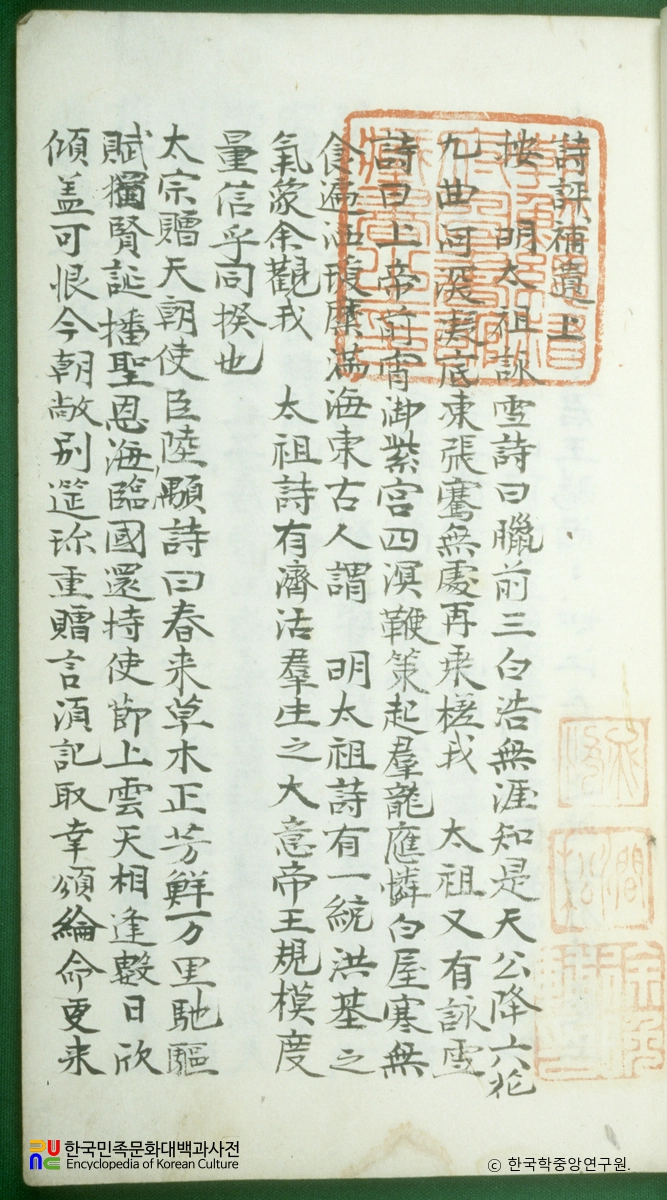 詩評補遺上
按 明太祖詠雪詩曰臘前三白浩無涯知是天公降六花
九曲河深凍底凍張騫無處再乘槎我 太祖又有詠雪
詩曰上帝前宵御紫宮四溟鞭策起羣龍應憐白屋寒無
食遍洒瓊糜滿海東古人謂 明太祖詩有一統洪基之
氣象余觀我 太祖詩有濟活羣生之大意帝王規模度
量信乎同揆也
太宗贈天朝使臣陸顒詩曰春来草木正芳鮮万里馳驅
賦獨賢誕播聖恩海臨國還持使節上雲天相逢數日欣
傾盖可恨今朝敞別筵珎重贈言須記取幸頒綸命更来
한국민족문화대백과사전
Encyclopedia of Korean Culture
© 한국학중앙연구원.